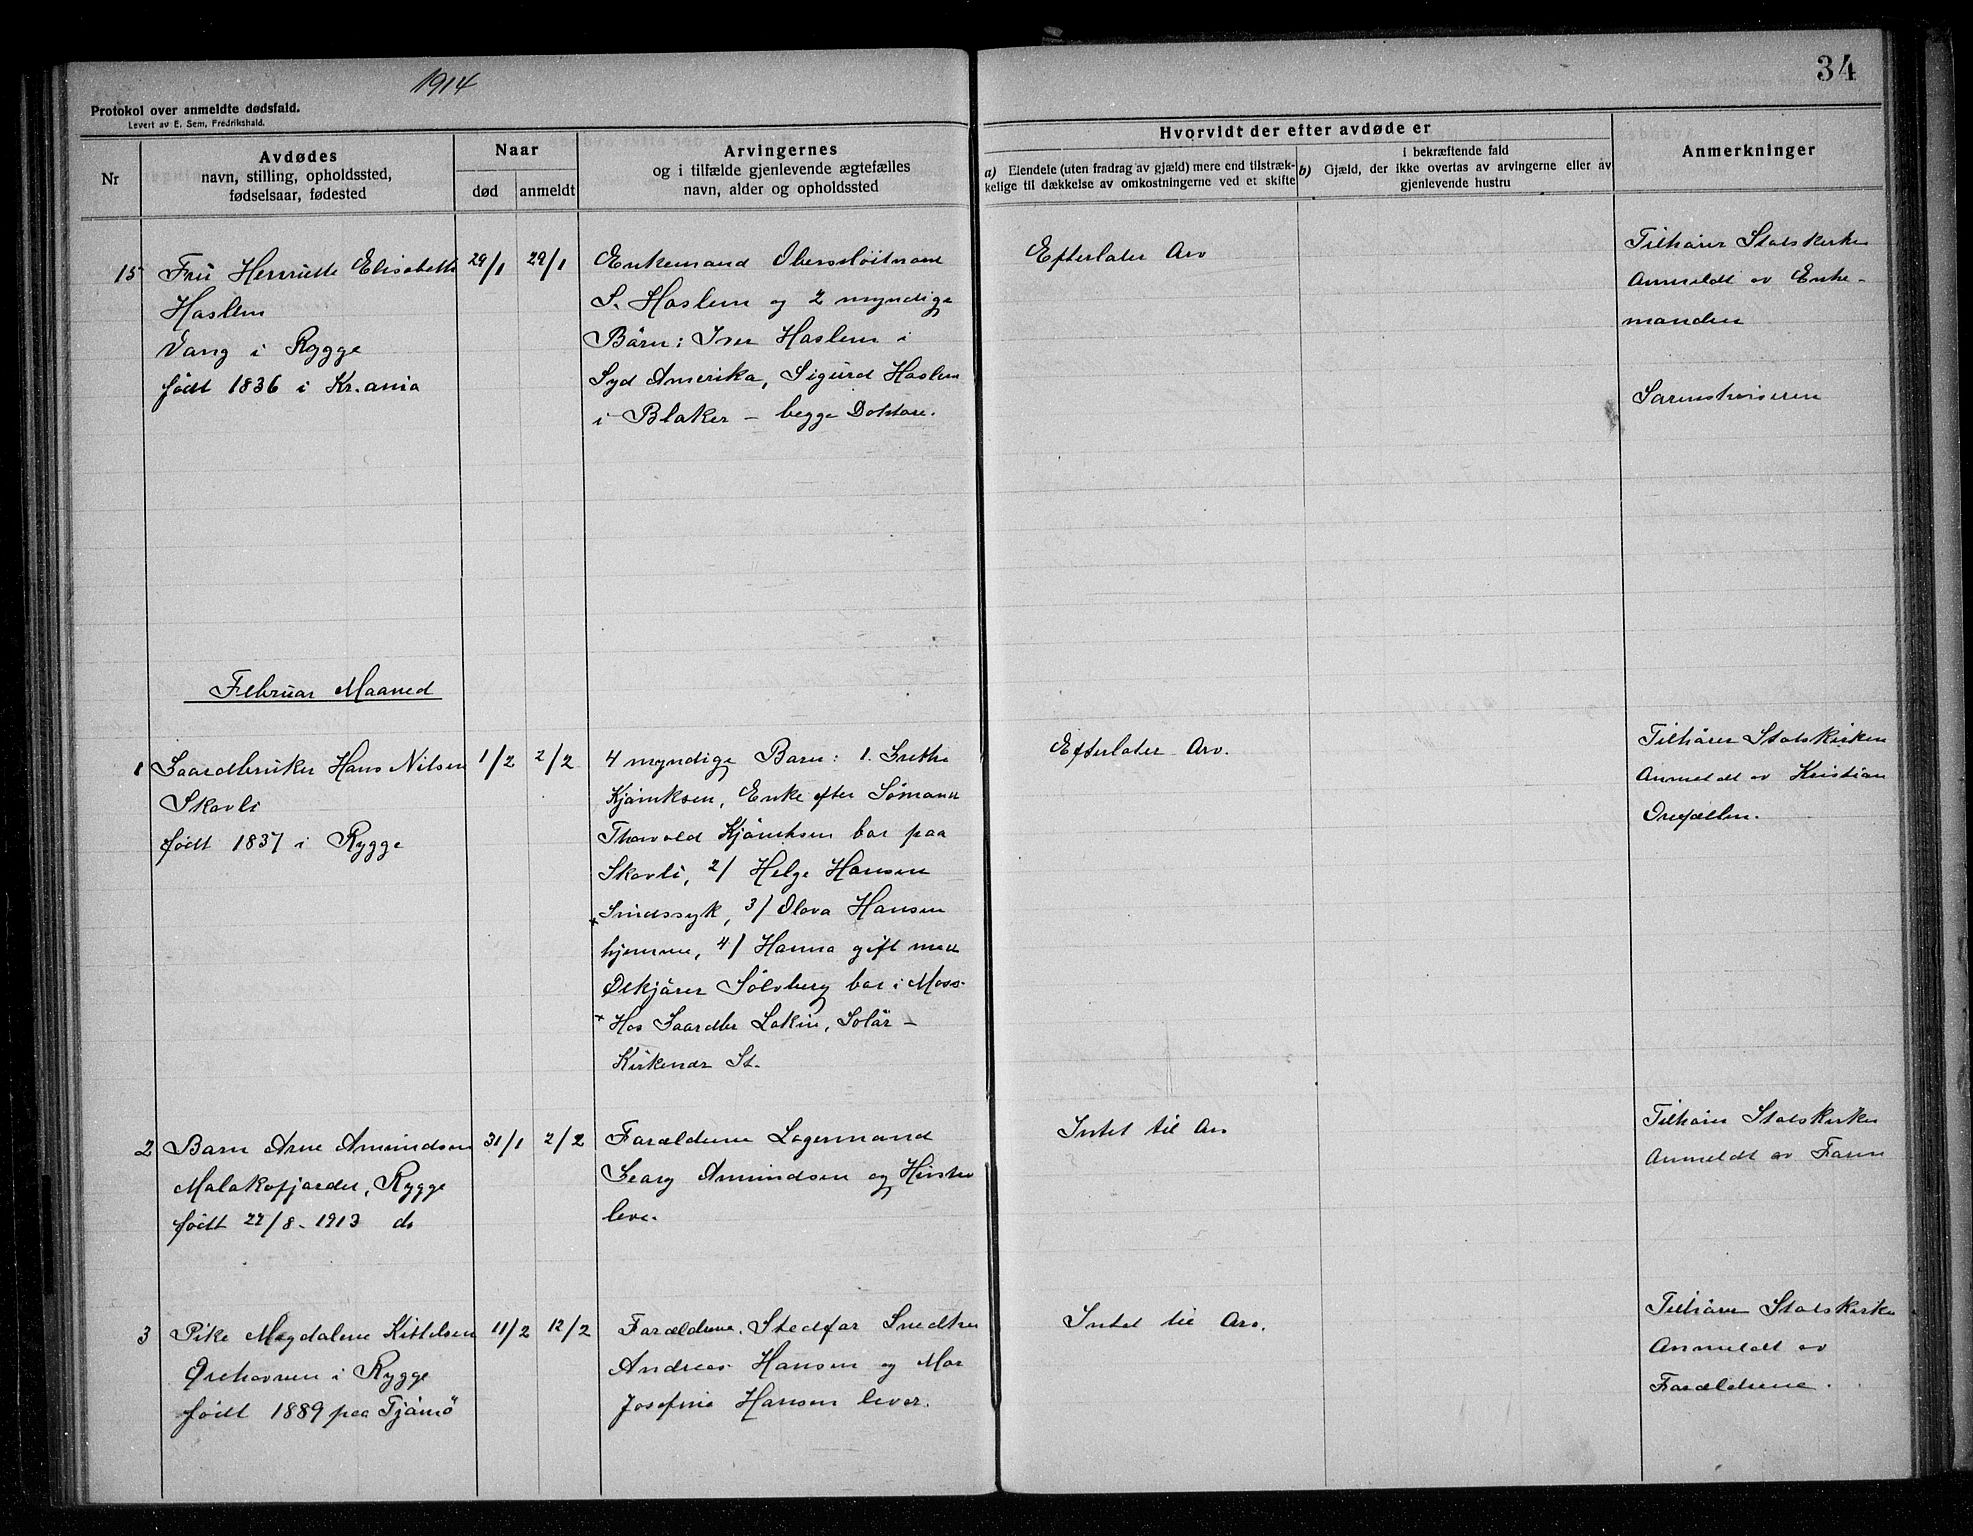 1914
34
Protokol over anmeldte dødsfald.
Levert av E. Sem, Fredrikshald.
Nr
Avdødes
navn, stilling, opholdssted,
fødselsaar, fødested
Naar
død
anmeldt
Arvingernes
og i tilfælde gjenlevende ægtefælles
navn, alder og opholdssted
Hvorvidt der efter avdøde er
a) Eiendele (uten fradrag av gjæld) mere end tilstræk-
kelige til dækkelse av omkostningerne ved et skifte
b) Gjæld, der i bekræftende fald
ikke overtas av arvingerne eller av
gjenlevende hustru
Anmerkninger
15
Fru Henriette Elisabeth
Haslem
Vang i Rygge
født 1836 i Kr.ania
29/1
29/1
Enkemand Oberstløitnant
S. Haslem og 2 myndige
Børn: Iver Haslem i
Syd Amerika, Sigurd Haslem
i Blaker - begge Doktore.
Efterlater Arv
Tilhører Statskirken
Anmeldt av Enke-
manden
Februar Maaned
1
Gaardbruker Hans Nilsen
Skovli
født 1837 i Rygge
1/2
2/2
4 myndige Barn: 1. Grethe
Enke efter Sømand
Thorvald bor paa
Skovli, 2/ Helge Hansen
+ Sindssyk, 3/ Olava Hansen
hjemme, 4/ Hanna gift med
Ølkjører Sølvberg bor i Moss-
+ Hos Gaardbr Lakin, Solør -
Kirkenær St.
Efterlater Arv.
Tilhører Statskirken
Anmeldt av Kristian
2
Barn Arne Amundsen
Malakofjordet, Rygge
født 22/8 - 1913 do
31/1
2/2
Forældrene Lagermand
Georg Amundsen og Hustru
lever
Intet til Arv
Tilhører Statskirken
Anmeldt av Faren
3
Pike Magdalene Kittelsen
Ørehavnen i Rygge
født 1889 paa Tjømø
11/2
12/2
Forældrene. Stedfar Snedker
Andreas Hansen og Mor
Josefine Hansen lever.
Intet til Arv.
Tilhører Statskirken
Anmeldt av
Forældrene.